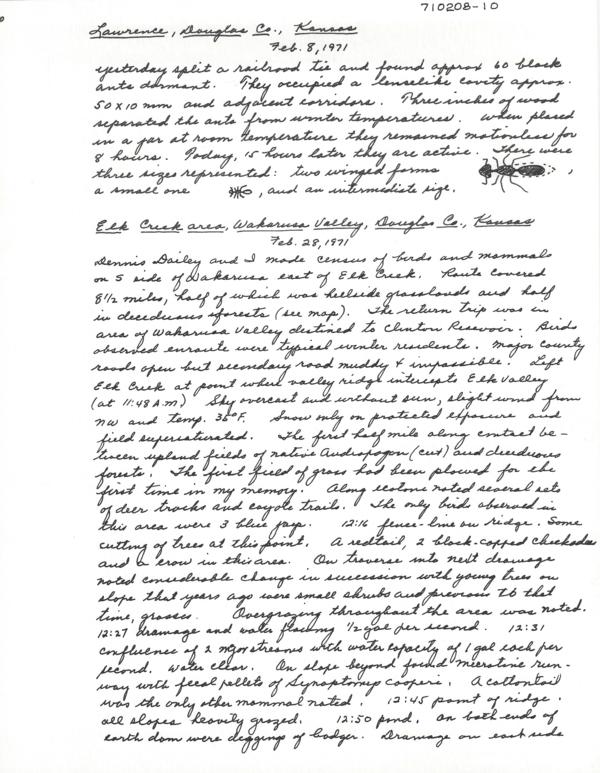 710208-10
Lawrence, Douglas Co., Kansas
Feb. 8, 1971
Yesterday split a railroad tie and found approx 60 black
ants dormant. They occupied a lenselike cavity approx.
50 x 10 mm and adjacent corridors. Three inches of wood
separated the ants from winter temperatures. When placed
in a jar at room temperature they remained motionless for
8 hours. Today, 15 hours later they are active. There were
three sizes represented: two winged forms ,
a small one , and an intermediate size.
Elk Creek area, Wakarusa Valley, Douglas Co., Kansas
Feb. 28, 1971
Dennis Dailey and I made census of birds and mammals
on S side of Wakarusa east of Elk Creek. Route covered
8½ miles, half of which was hillside grasslands and half
in deciduous forests (see map). The return trip was in
area of Wakarusa Valley destined to Clinton Resevoir. Birds
observed enroute were typical winter residents. Major county
roads open but secondary road muddy & impassible. Left
Elk Creek at point where valley ridge intercepts Elk Valley
(at 11:48 A.M.) Sky overcast and without sun, slight wind from
NW and temp. 35°F. Snow only on protected exposure and
field supersaturated. The first half mile along contact be-
tween upland fields of native Andropogon (cut) and deciduous
forests. The first field of grass had been plowed for the
first time in my memory. Along ecotone noted several sets
of deer tracks and coyote trails. The only birds observed in
this area were 3 blue jays. 12:16 fence-line on ridge. Some
cutting of trees at this point. A redtail, 2 black-capped chickadees
and a crow in this area. On traverse into next drainage
noted considerable change in succession with young trees on
slope that years ago were small shrubs and previous to that
time, grasses. Overgrazing throughout the area was noted.
12:27 drainage and water flowing ½ gal per second. 12:31
confluence of 2 major streams with water capacity of 1 gal each per
second. Water clear. On slope beyond found microtine run-
way with fecal pellets of Synaptomys cooperi. A cottontail
was the only other mammal noted. 12:45 point of ridge.
all slopes heavily grazed. 12:50 pond. on both ends of
earth dam were diggings of badger. Drainage on east side